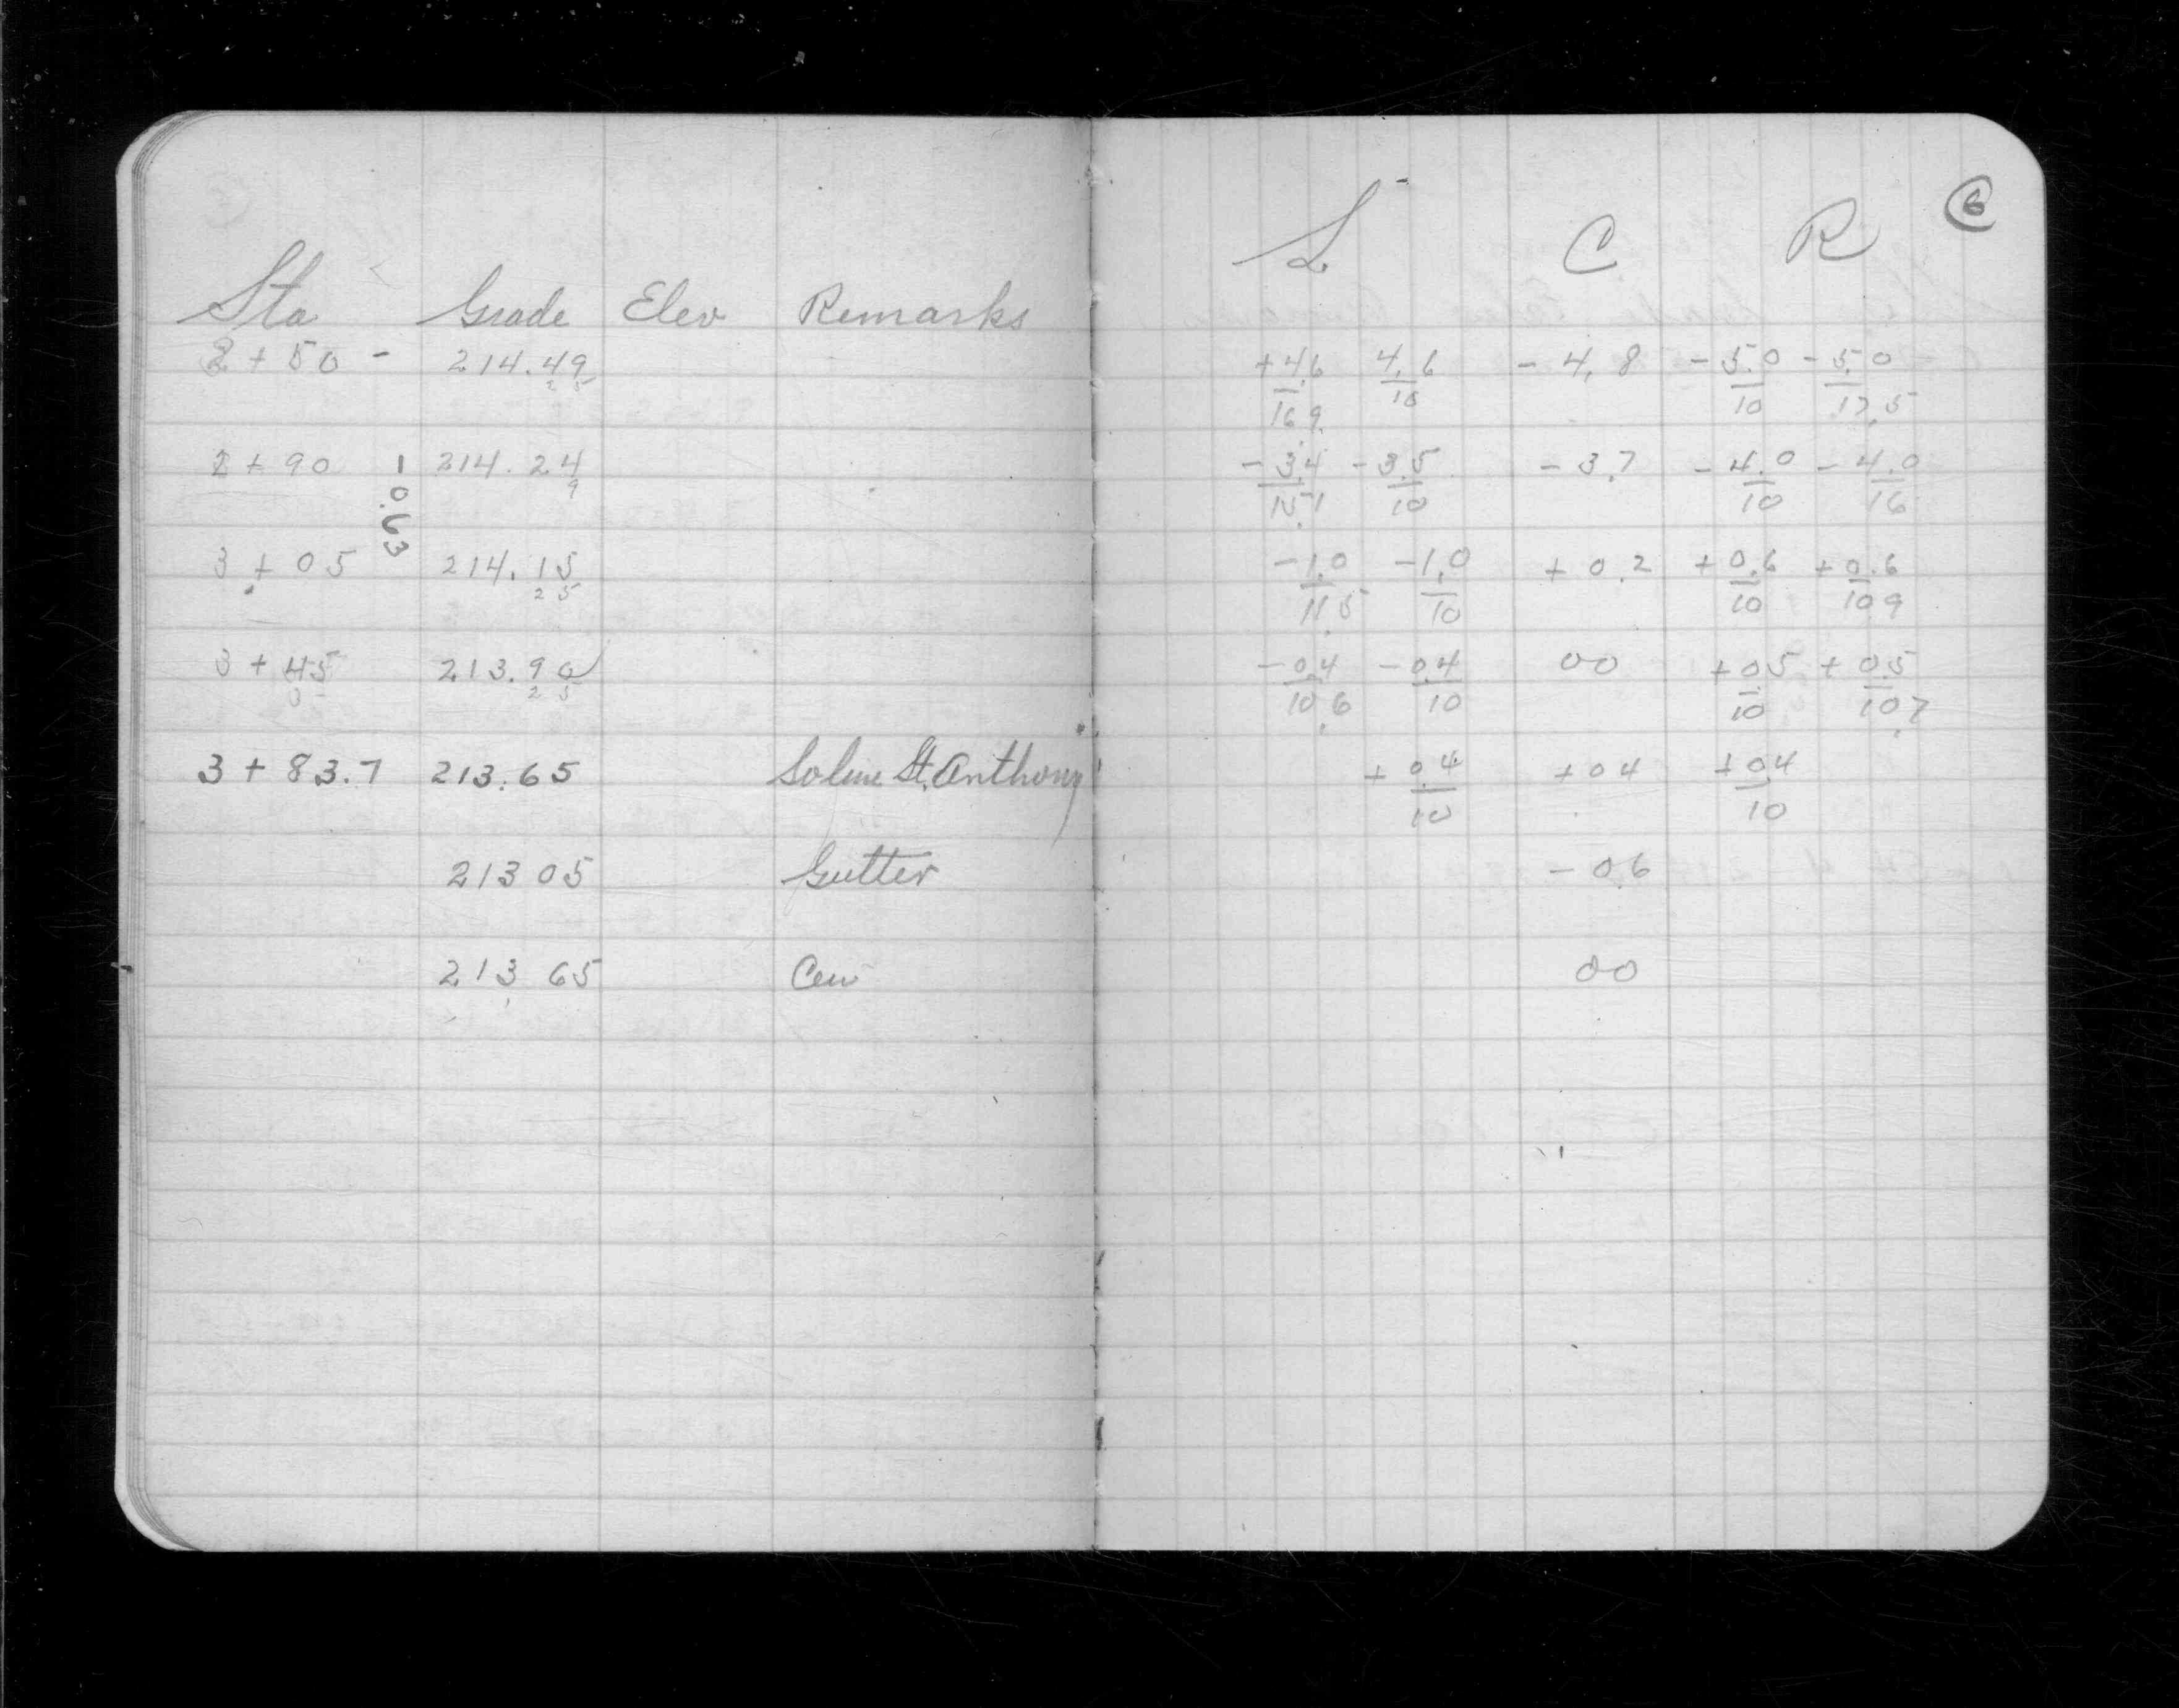 6
L C R
Sta Grade Elev Remarks
2 + 50 - 214.49
2 5
+4.6 4.6 - 4.8 - 5.0 - 5.0
16.9 10 10 17.5
2 + 90 214.24
9
- 3.4 - 3.5 - 3.7 - 4.0 - 4.0
15.1 10 10 16
- 0.63
3 + 05 214.15
2 5
- 1.0 - 1.0 + 0.2 + 0.6 + 0.6
11.5 10 10 10 9
3 + 45 213.90
2 5
- 0.4 - 0.4 00 + 0.5 + 0.5
10.6 10 10 10.7
3 + 83.7 213.65 So line St. Anthony
+ 0.4 + 0.4 + 0.4
10 10
213 05 Gutter - 0.6
213 65 Cen 00